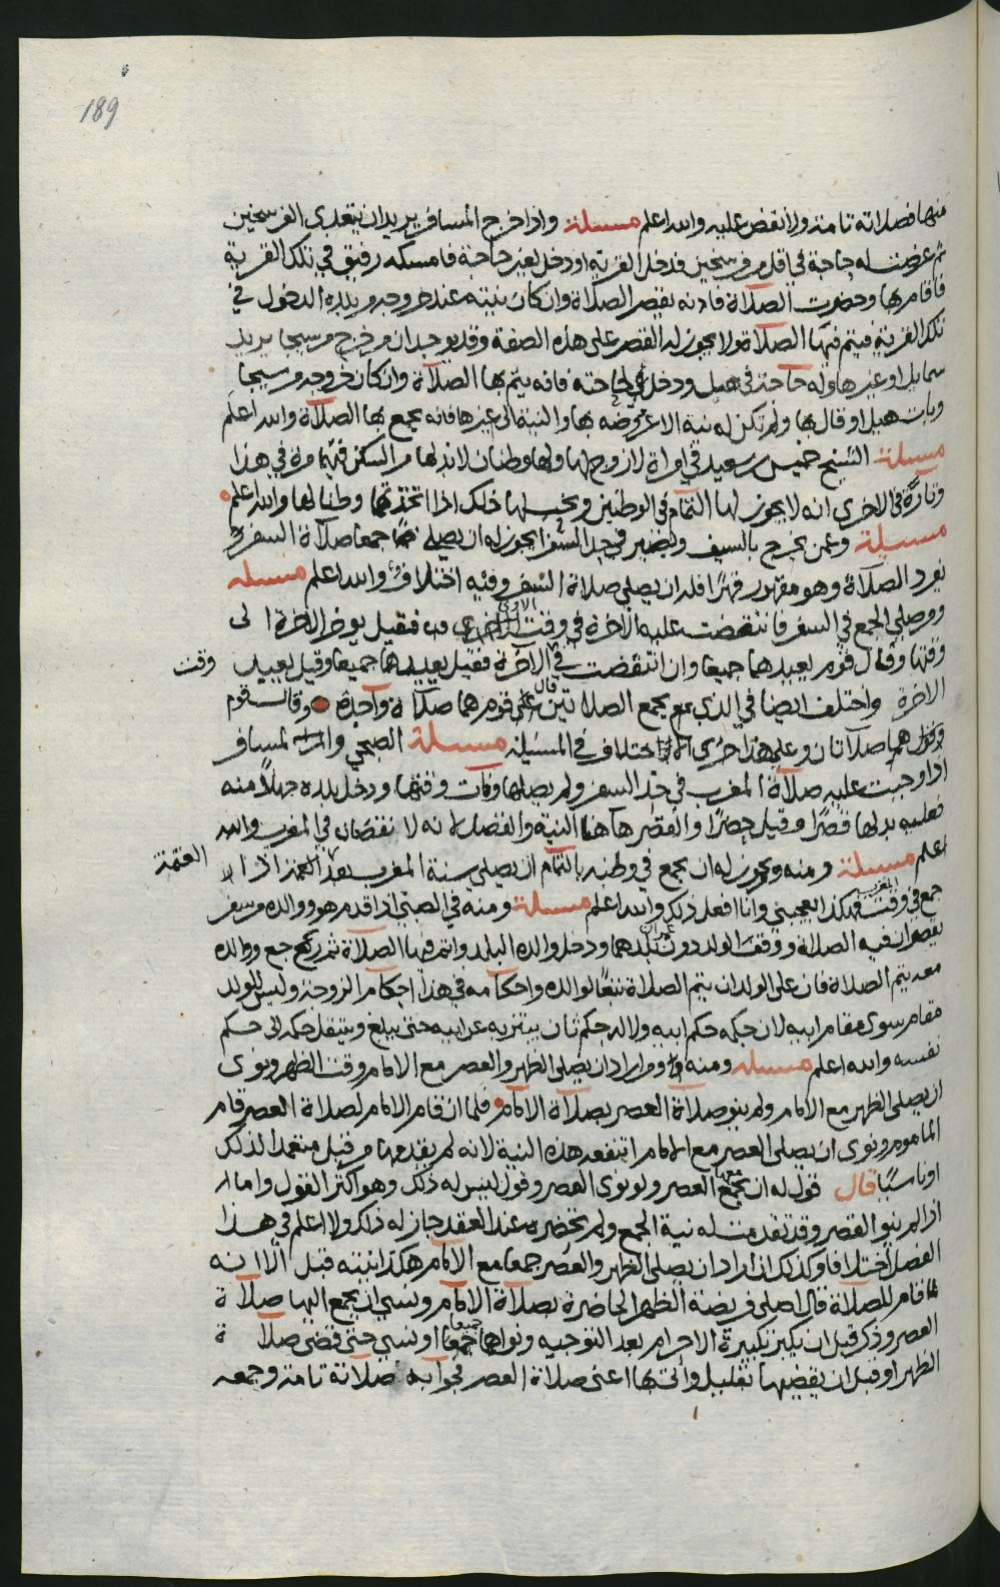 189
منها فصلاته تامة ولا نقض عليه والله اعلم مسئلة واذا خرج المسافر يريد ان يتعدى الفرسخين
ثم عرضت له حاجة في اقل من فرسخين فدخل القرية او دخل لغير حاجة فامسكه رفيق في تلك القرية
فاقام بها وحضرت الصلاة فانه يقصر الصلاة وان كان نيته عند خروجه من بلده الدخول في
تلك القرية فيتم فيها الصلاة ولا يجوز له القصر على هذه الصفة وقد يوجد ان من خرج من سيجا يريد
سمايل او غيرها وله حاجة في هيل ودخل هيل لحاجته فانه يتم بها الصلاة وان كان خروجه من سيجا
وبات هيل او قال بها ولم تكن له نية الا عرضه بها والنية الى غيرها فانه يجمع بها الصلاة والله اعلم
مسئلة الشيخ خميس بن سعيد في امراة لازوج لها ولها وطنان لابد لها من السكن فيهما مرة في هذا
وتارة في الاخرى انه لا يجوز لها التمام في الوطنين ويجب لها ذلك اذا اتخذتهما وطنا لها والله اعلم
مسئلة وعمن يخرج بالسيف ويصير في حد السفر ايجوز له ان يصلي جمعا صلاة السفر
يعرد الصلاة وهو مقهور قهرا فله ان يصلي صلاة السفر وفيه اختلاف والله اعلم مسئله
ومن صلى الجمع في السفر فانتقضت عليه الاخرة في وقت الاولى فقيل يوخر الاخرة الى
وقتها وقال قوم يعيدهما جميعا وان انتقضت في الاخرة فقيل يعيدهما جميعا وقيل يعيد وقت
الاخرة واختلف ايضا في الذي يجمع الصلاتين قال قوم هما صلاة واحدة وقال قوم
هما صلاتان وعلى هذا جرى الاختلاف في المسئلة مسئلة الصبحي والمسافر
اذا وجبت عليه صلاة المغرب في حد السفر ولم يصلها وفات وقتها ودخل بلده جهلا منه
فعليه بدلها قصرا وقيل حضرا والقصر هاهنا النية والفضل لانه لا نقصان في المغرب والله
اعلم مسئلة ومنه ويجوز له ان يجمع في وطنه بالتمام ان يصلي سنة المغرب بعد العتمة اذا العتمة
جمع في وقت المغرب هكذا يعجبني وانا افعل ذلك والله اعلم مسئلة ومنه في الصبي اذا قدم هو ووالده من سفر
يقصران فيه الصلاة ووقف الولد دون عمران بلدهما ودخل والده البلد واتم فيها الصلاة ثم رجع ووالده
معه يتم الصلاة فان على الولد ان يتم الصلاة تبعا لوالده واحكامه في هذا احكام الزوجة وليس للولد
مقام سوى مقام ابيه لان حكمه حكم ابيه ولا له حكم ثان ينتزيه عن ابيه حتى يبلغ وينتقل حكمه الى حكم
نفسه والله اعلم مسئله ومنه ومن اراد ان يصلي الظهر والعصر مع الامام وقت الظهر ونوى
ان يصلي الظهر مع الامام ولم ينو صلاة العصر بصلاة الامام فلما ان قام الامام لصلاة العصر قام
الماموم ونوى ان يصلي العصر مع الامام اتنفعه هذه النية لانه لم يقدمها من قبل متعمدا لذلك
او ناسيا قال قول له ان يجمع العصر ولو نوى العصر وقول ليس له ذلك وهو اكثر القول واما
اذا لم ينو القصر وقد تقدمت له نية الجمع ولم تحضره عند العقد جاز له ذلك ولا اعلم في هذا
الفصل اختلافا وكذلك ان اراد ان يصلي الظهر والعصر جمعا مع الامام هكذا نيته قبل الا انه
لما قام للصلاة قال اصلي فريضة الظهر الحاضرة بصلاة الامام ونسي ان يجمع اليها صلاة
العصر وذكر قبل ان يكبر تكبيرة الاحرام بعد التوجيه ونواها جمعا جميعا او نسي حتى قضى صلاة
الظهر او قبل ان يقضيها بقليل واتى بها اعنى صلاة العصر فجوابه صلاته تامة وجمعه